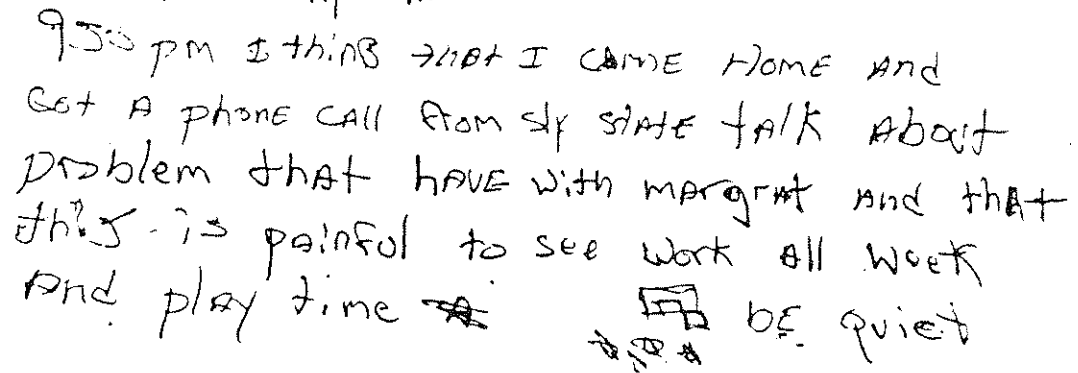 950 pm I think that I CAME Home And
Got A phone CALL from sly STATE tAlk About
problem that hAVE with margrat And thAt
this is painful to see work All week
And play time be quiet